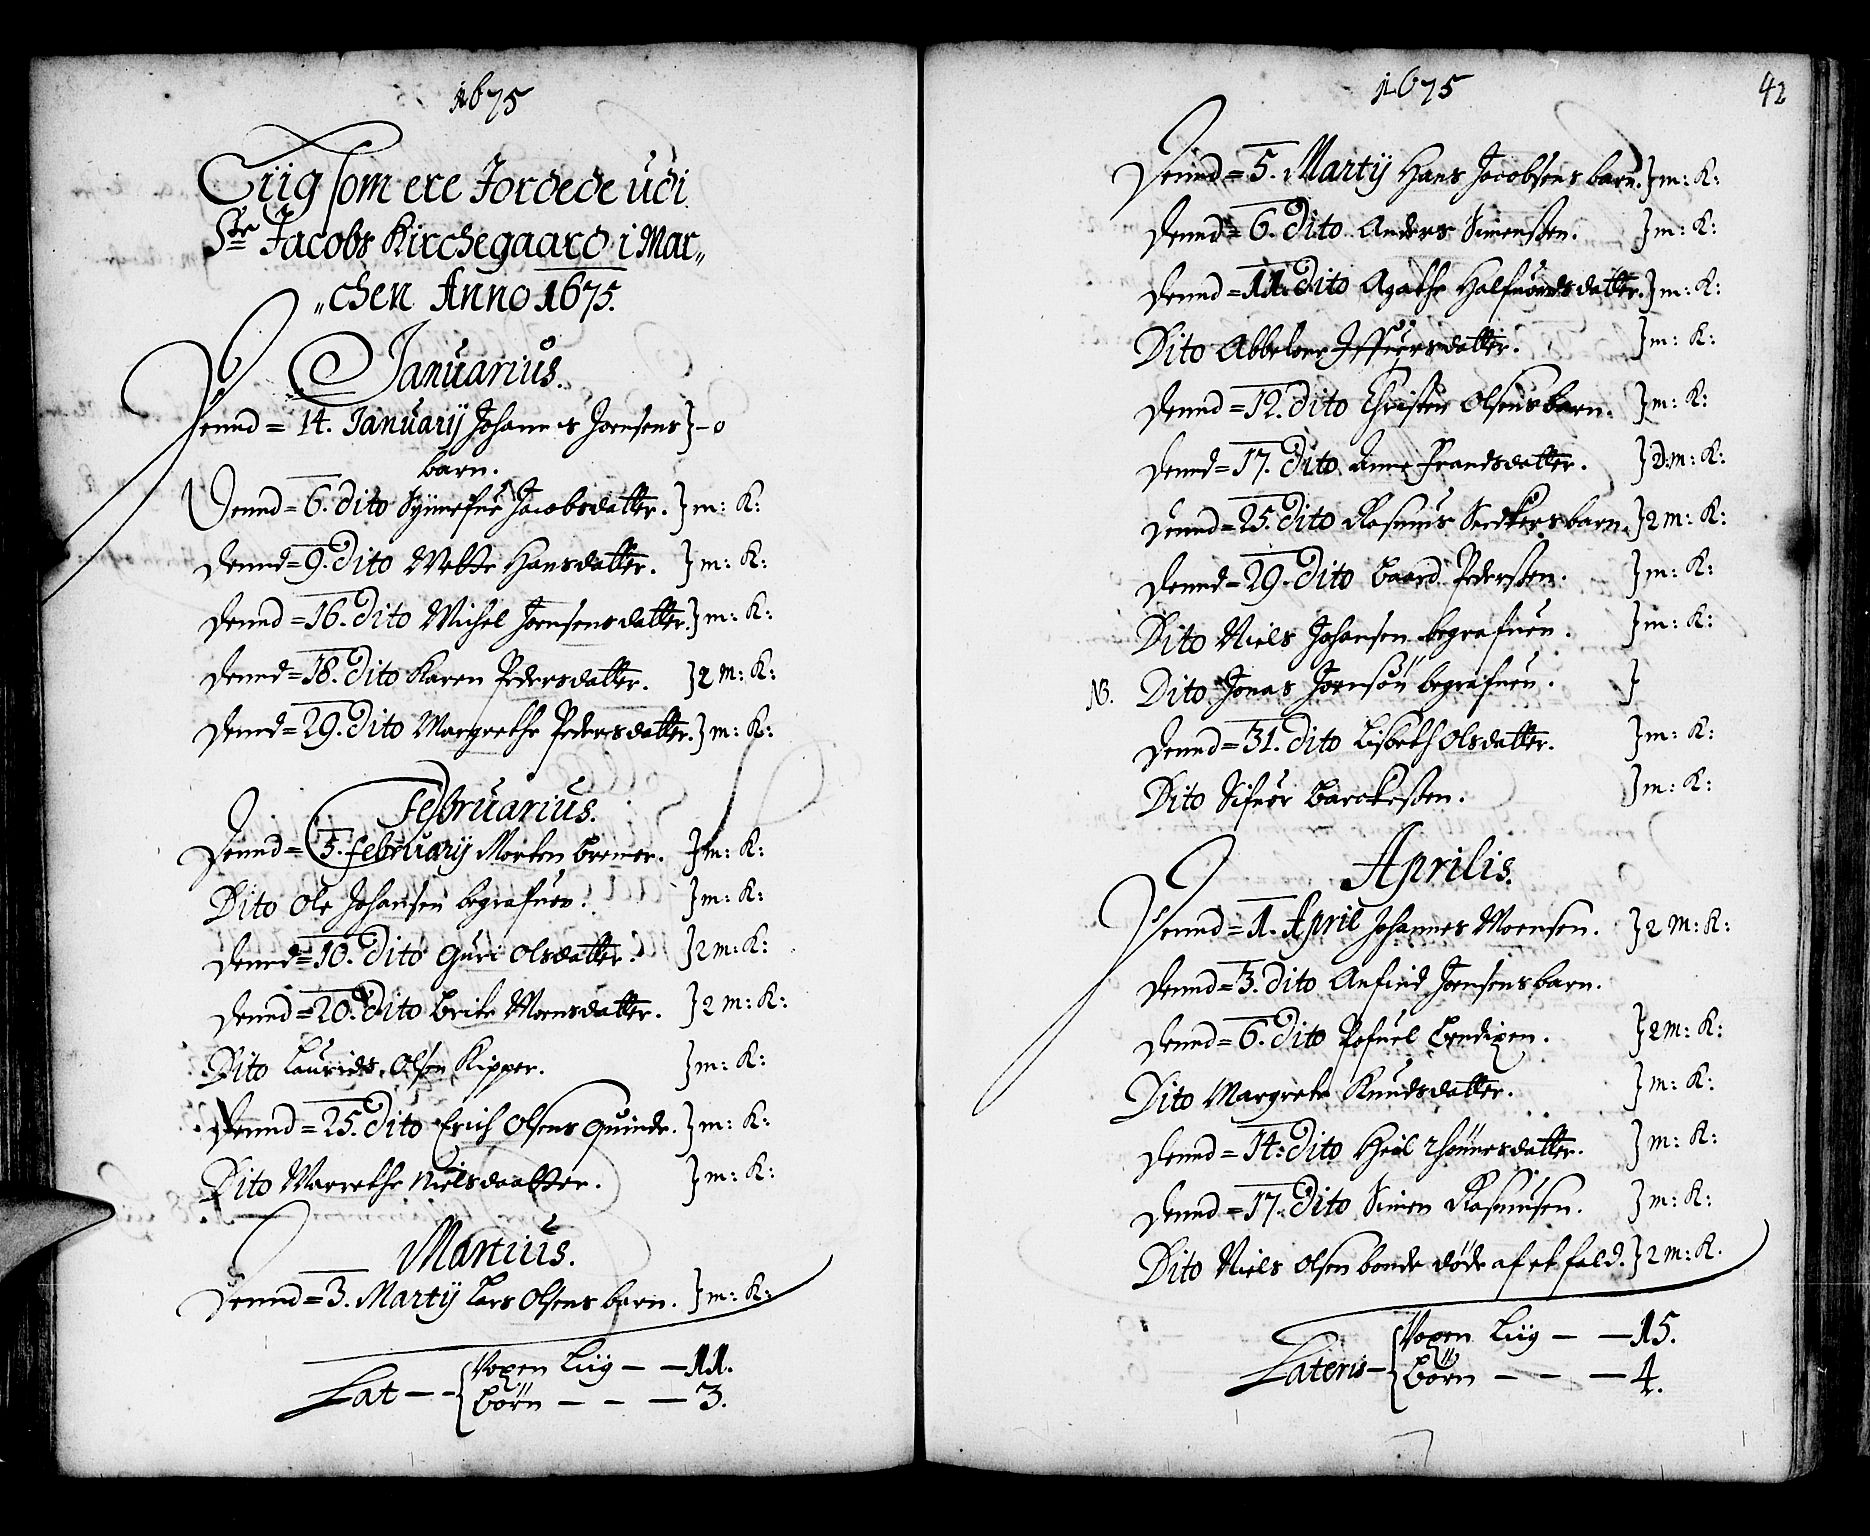 1675
Liig som ere Jordede udi
Ste Jacobs Kirchegaard i Mar„
„chen Anno 1675.
Januarius.
Dennd = 14. Januarij Johannes Joensens } - 0
barn.
Dennd = 6. dito Sÿnnefue Jacobsdatter. } m: K:
Dennd = 9. dito Mette Hansdatter. } m: K:
Dennd = 16. dito Michel Joensens datter. } m: K:
Dennd = 18. dito Karen Pedersdatter. } 2 m: K:
Dennd = 29. dito Margrethe Pedersdatter. } m: K:
Februarius.
Dennd = 5. februarij Morten Bremer. } m: K:
Dito Ole Johansen begrafuen. } m: K:
Dennd = 10. dito Guri Olsdatter. } 2 m: K:
Dennd = 20. dito Brite Monsdatter. } 2 m: K:
Dito Laurids Olsen Kipper. } m: K:
Dennd = 25. dito Erich Olsens quinde. } m: K:
Dito Marrethe Nielsdaatter. } m: K:
Martius.
Dennd = 3. Martij Lars Olsens barn. } m: K:
Lat - - { Voxen Liig - - 11.
Börn - - - 3.
1675
42
Dennd = 5. Martij Hans Jacobsens barn. } m: K:
Dennd = 6. dito Anders Simensen. } m: K:
Dennd = 11. dito Agathe Halfuordsdatter. } m: K:
Dito Abbelone Iffuersdatter. } m: K:
Dennd = 12. dito Christen Olsens barn. } m: K:
Dennd = 17. dito Anne Frandsdatter. } D: m: K:
Dennd = 25. dito Rasmus barn. } 2 m: K:
Dennd = 29. dito Baard Pedersen. } m: K:
Dito Niels Johansen begrafuen. } m: K:
NB. Dito Jonas Joensön begrafuen. }
Dennd = 31. dito Lisbeth Olsdatter. } m: K:
Dito Sifuer } m: K:
Aprilis.
Dennd = 1. April Johannes Moensen. } 2 m: K:
Dennd = 3. dito Anfind Joensens barn.
Dennd = 6. dito Pofuel Bendixen. } 2 m: K:
Dito Margrete Knudsdatter. } m: K:
Dennd = 14: dito } m: K:
Dennd = 17. dito Simen Rasmusen. } m: K:
Dito Niels Olsen bonde döde af et fald. } 2 m: K.
Lateris - { Voxen Liig - - 15.
Börn - - - 4.